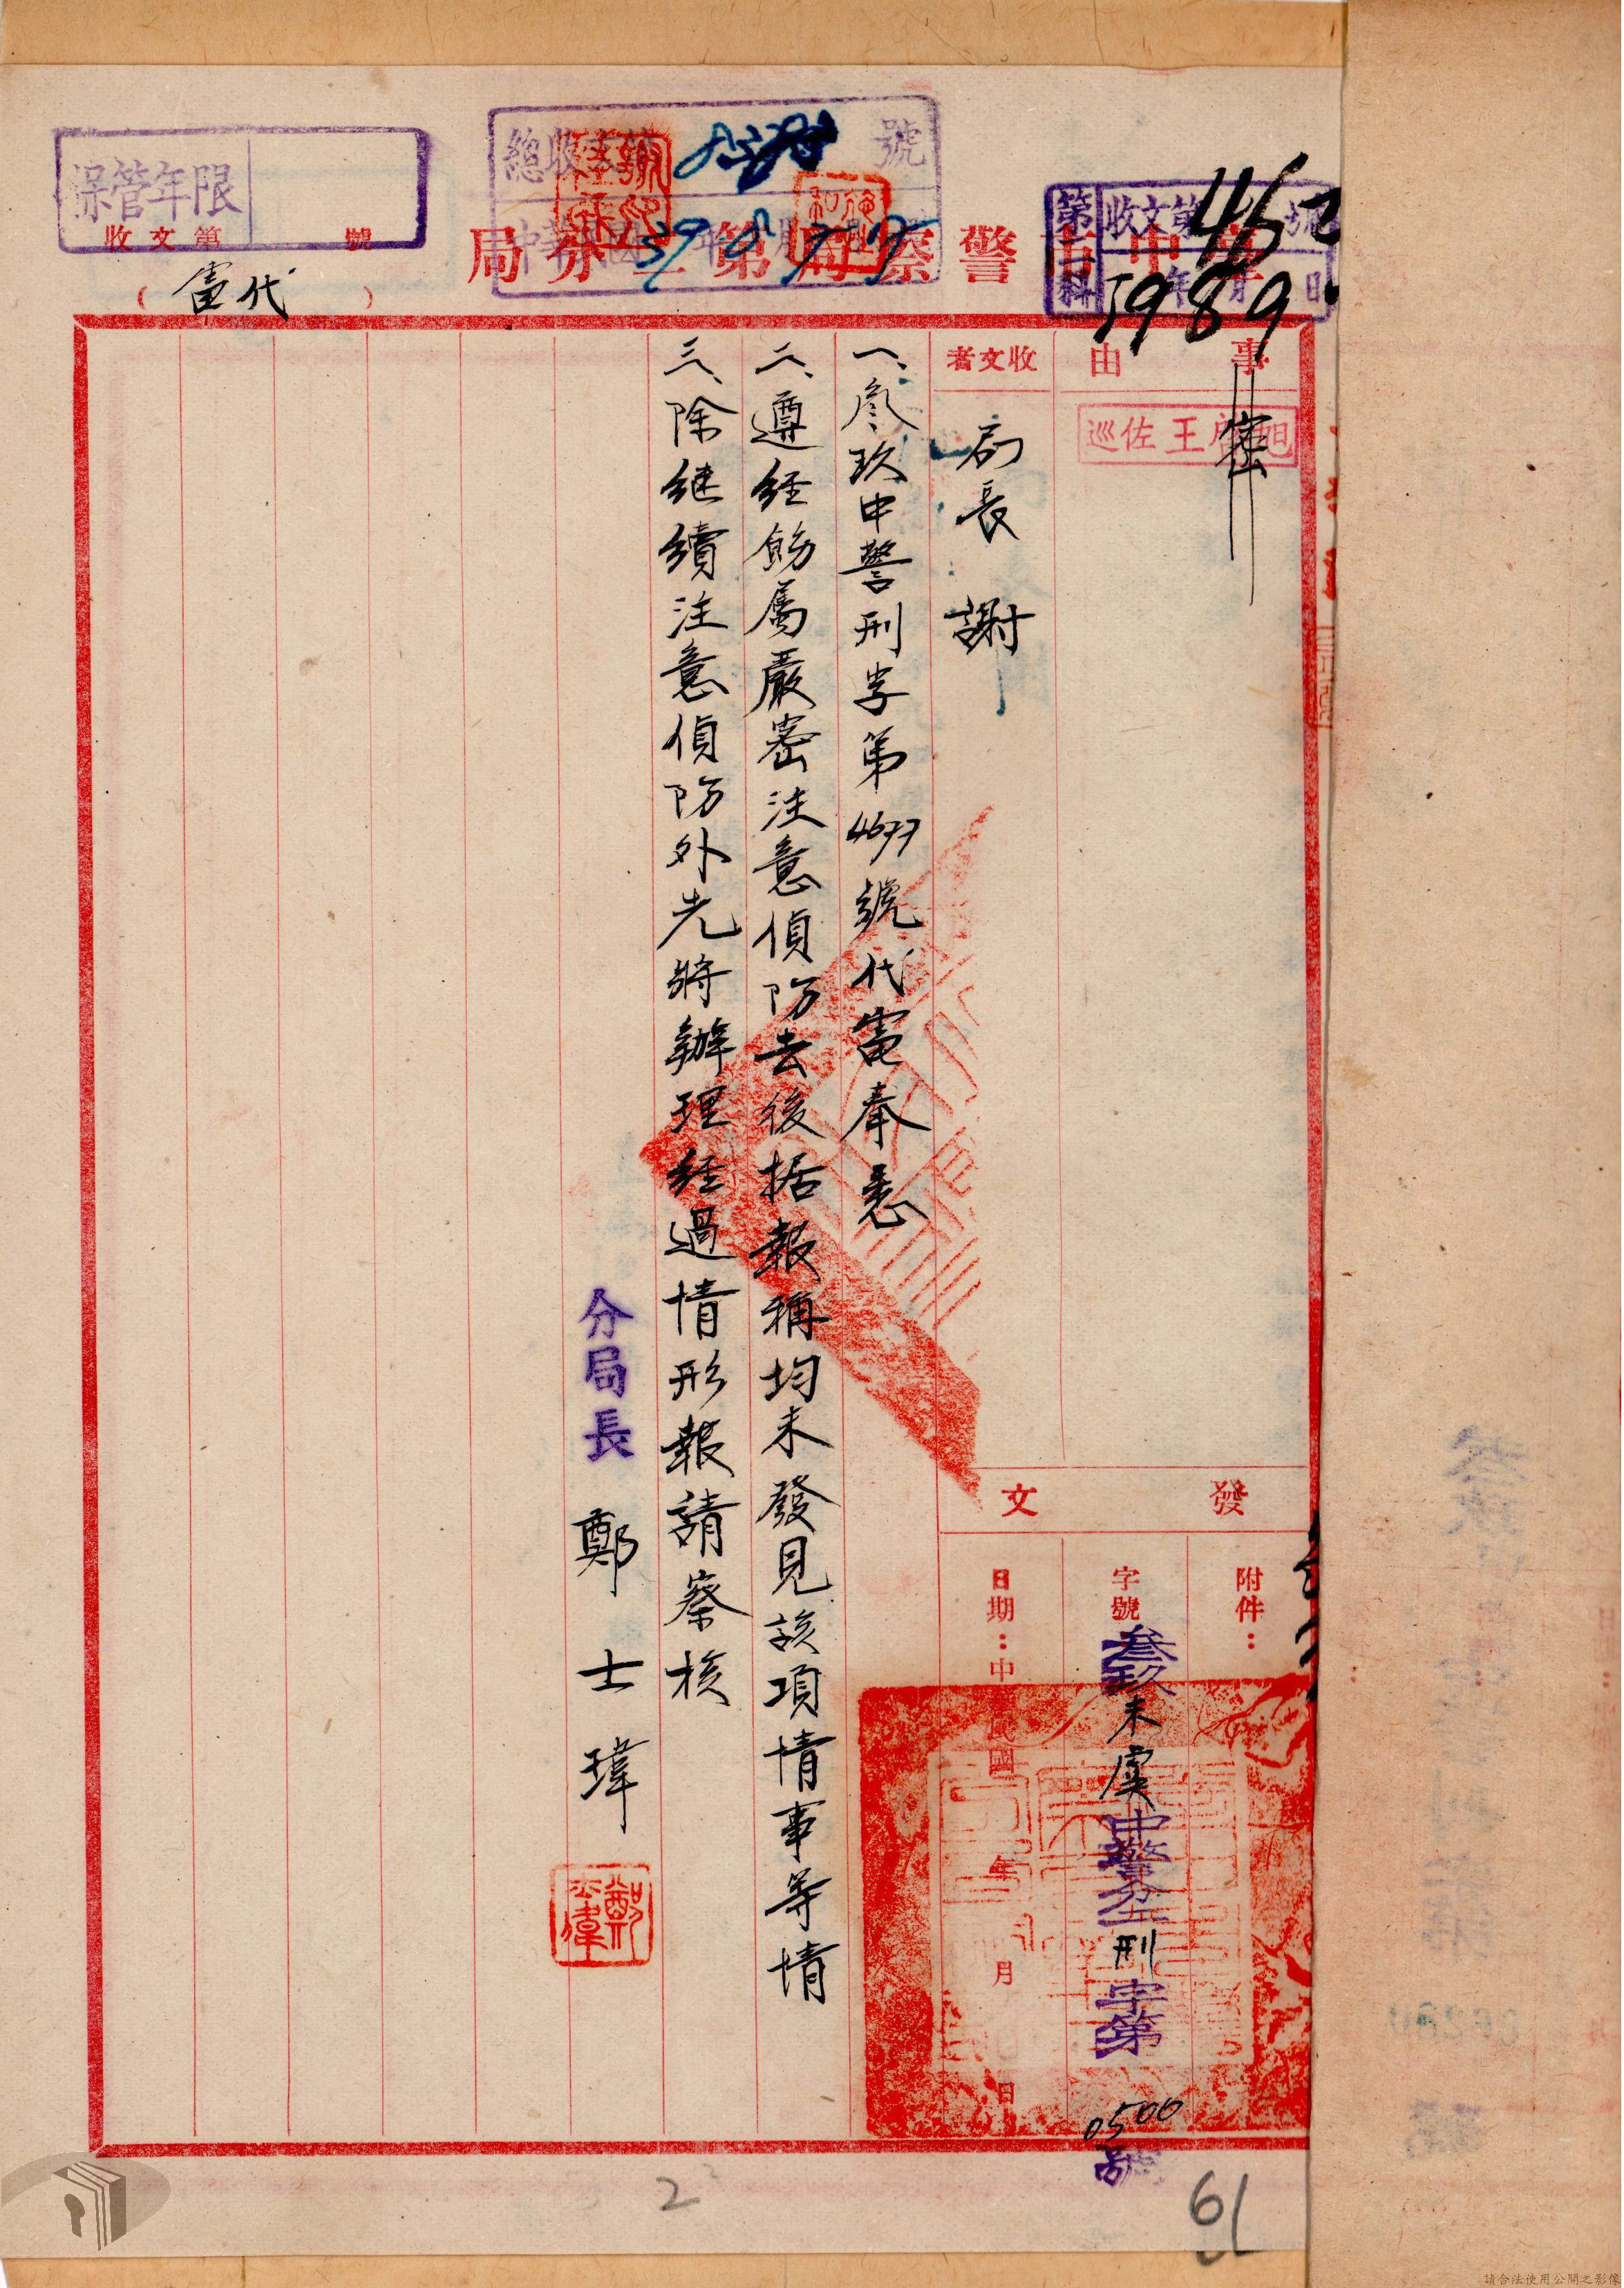 保管年限
收文第 號
（代電）
總收文 號
中華民國39年8月 日
臺中市警察局第二分局
第二科 收文第 號
年 月 日
462
3989
事由
巡佐王啓旭
密
收文者
局長 謝
發文
附件：
字號
叁玖未虞中警分二刑字第0500號
日期：中華民國 年 月 日
一、叁玖中警刑字第4677號代電奉悉
二、遵經飭屬嚴密注意偵防去後據報稱均未發見該項情事等情
三、除继續注意偵防外先將辦理經過情形報請察核
分局長 鄭士瑋
2
61
請合法使用公開之影像